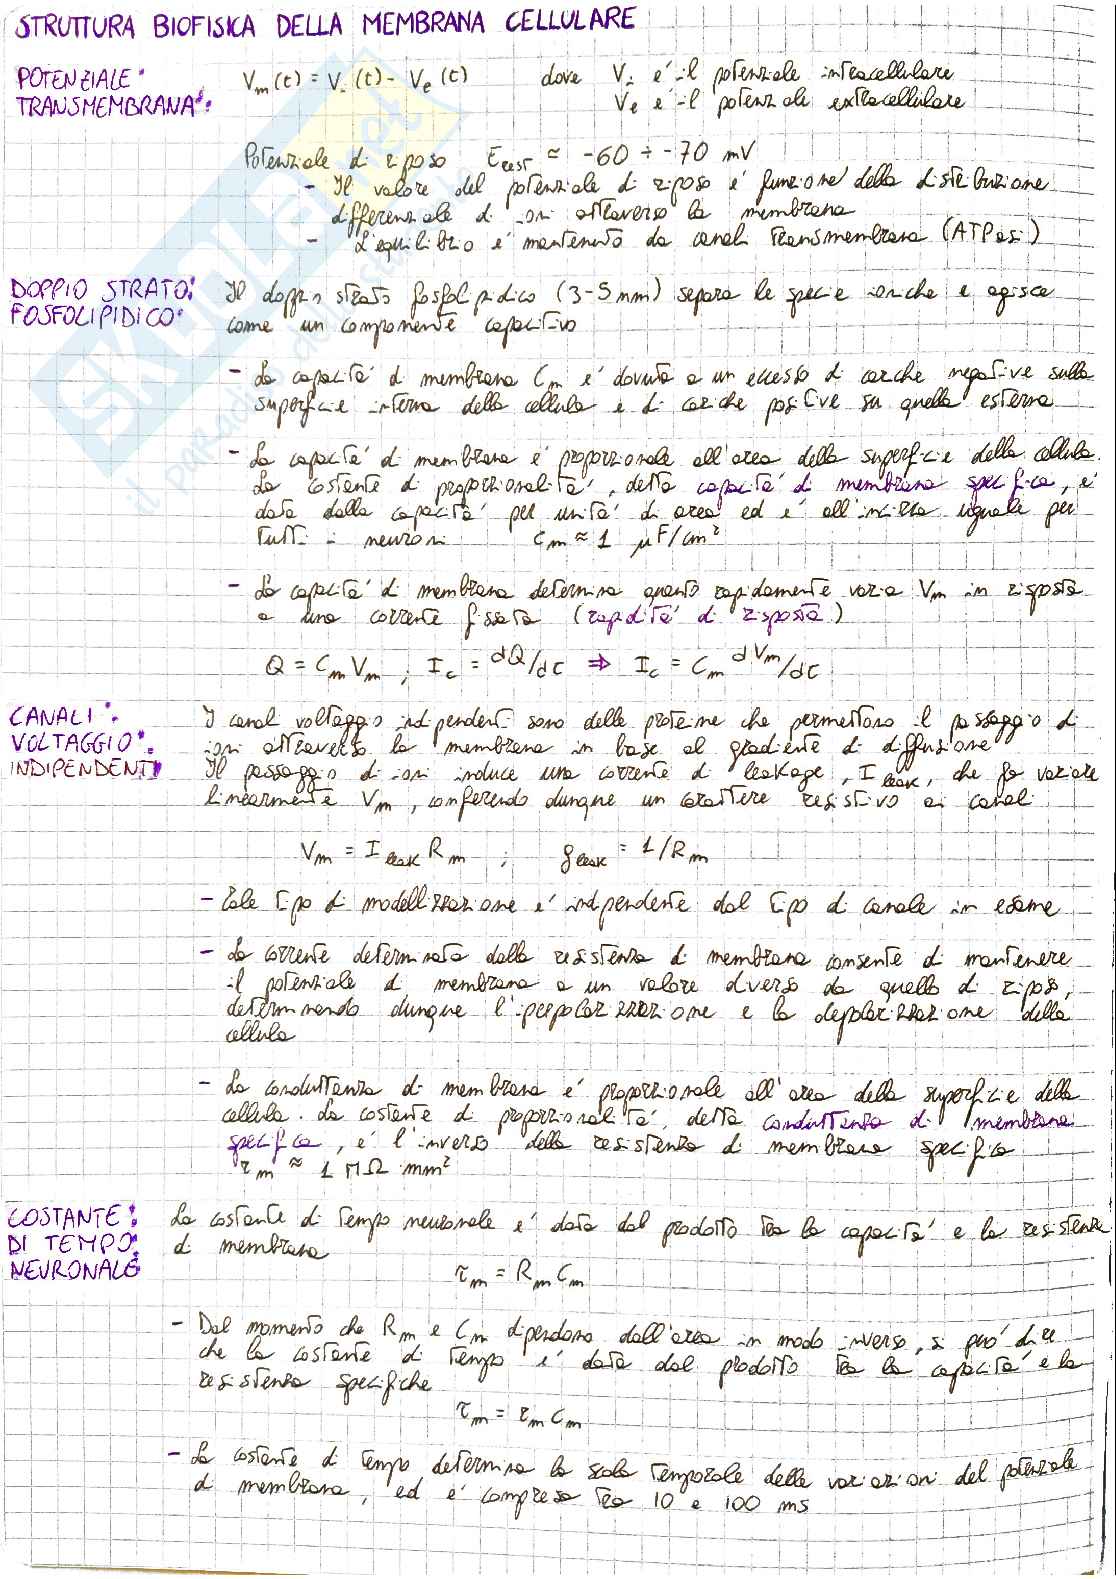 STRUTTURA BIOFISICA DELLA MEMBRANA CELLULARE
POTENZIALE TRANSMEMBRANA:
Vm(t) = Vi(t) - Ve(t) dove Vi é il potenziale intracellulare
Ve é il potenziale extracellulare
Potenziale di riposo Erest ≈ -60 ÷ -70 mV
- Il valore del potenziale di riposo é funzione della distribuzione
differenziale di ioni attraverso la membrana
- L'equilibrio é mantenuto da canali transmembrana (ATPasi)
DOPPIO STRATO FOSFOLIPIDICO:
Il doppio strato fosfolipidico (3-5 mm) separa le specie ioniche e agisce
come un componente capacitivo
- La capacitá di membrana Cm é dovuta a un eccesso di cariche negative sulla
superficie interna della cellula e di cariche positive su quella esterna
- La capacitá di membrana é proporzionale all'area della superficie della cellula.
La costante di proporzionalitá, detta capacitá di membrana specifica, é
data dalla capacitá per unitá di area ed é all'incirca uguale per
tutti i neuroni cm ≈ 1 μF/cm²
- La capacitá di membrana determina quanto rapidamente varia Vm in risposta
a una corrente fissata (rapiditá di risposta)
Q = Cm Vm ; Ic = dQ/dt ⇒ Ic = Cm dVm/dt
CANALI VOLTAGGIO INDIPENDENTI:
I canali voltaggio indipendenti sono delle proteine che permettono il passaggio di
ioni attraverso la membrana in base al gradiente di diffusione
Il passaggio di ioni induce una corrente di leakage, I leak, che fa variare
linearmente Vm, conferendo dunque un carattere resistivo ai canali
Vm = I leak Rm ; g leak = 1/Rm
- Tale tipo di modellizzazione é indipendente dal tipo di canale in esame
- La corrente determinata dalla resistenza di membrana consente di mantenere
il potenziale di membrana a un valore diverso da quello di riposo,
determinando dunque l'iperpolarizzazione e la depolarizzazione della
cellula
- La conduttanza di membrana é proporzionale all'area della superficie della
cellula. La costante di proporzionalitá, detta conduttanza di membrana
specifica, é l'inverso della resistenza di membrana specifica
rm ≈ 1 MΩ mm²
COSTANTE DI TEMPO NEURONALE:
La costante di tempo neuronale é data dal prodotto tra la capacitá e la resistenza
di membrana
τm = Rm Cm
- Dal momento che Rm e Cm dipendono dall'area in modo inverso, si puó dire
che la costante di tempo é data dal prodotto tra la capacitá e la
resistenza specifiche
τm = rm cm
- La costante di tempo determina la scala temporale delle variazioni del potenziale
di membrana, ed é compresa tra 10 e 100 ms